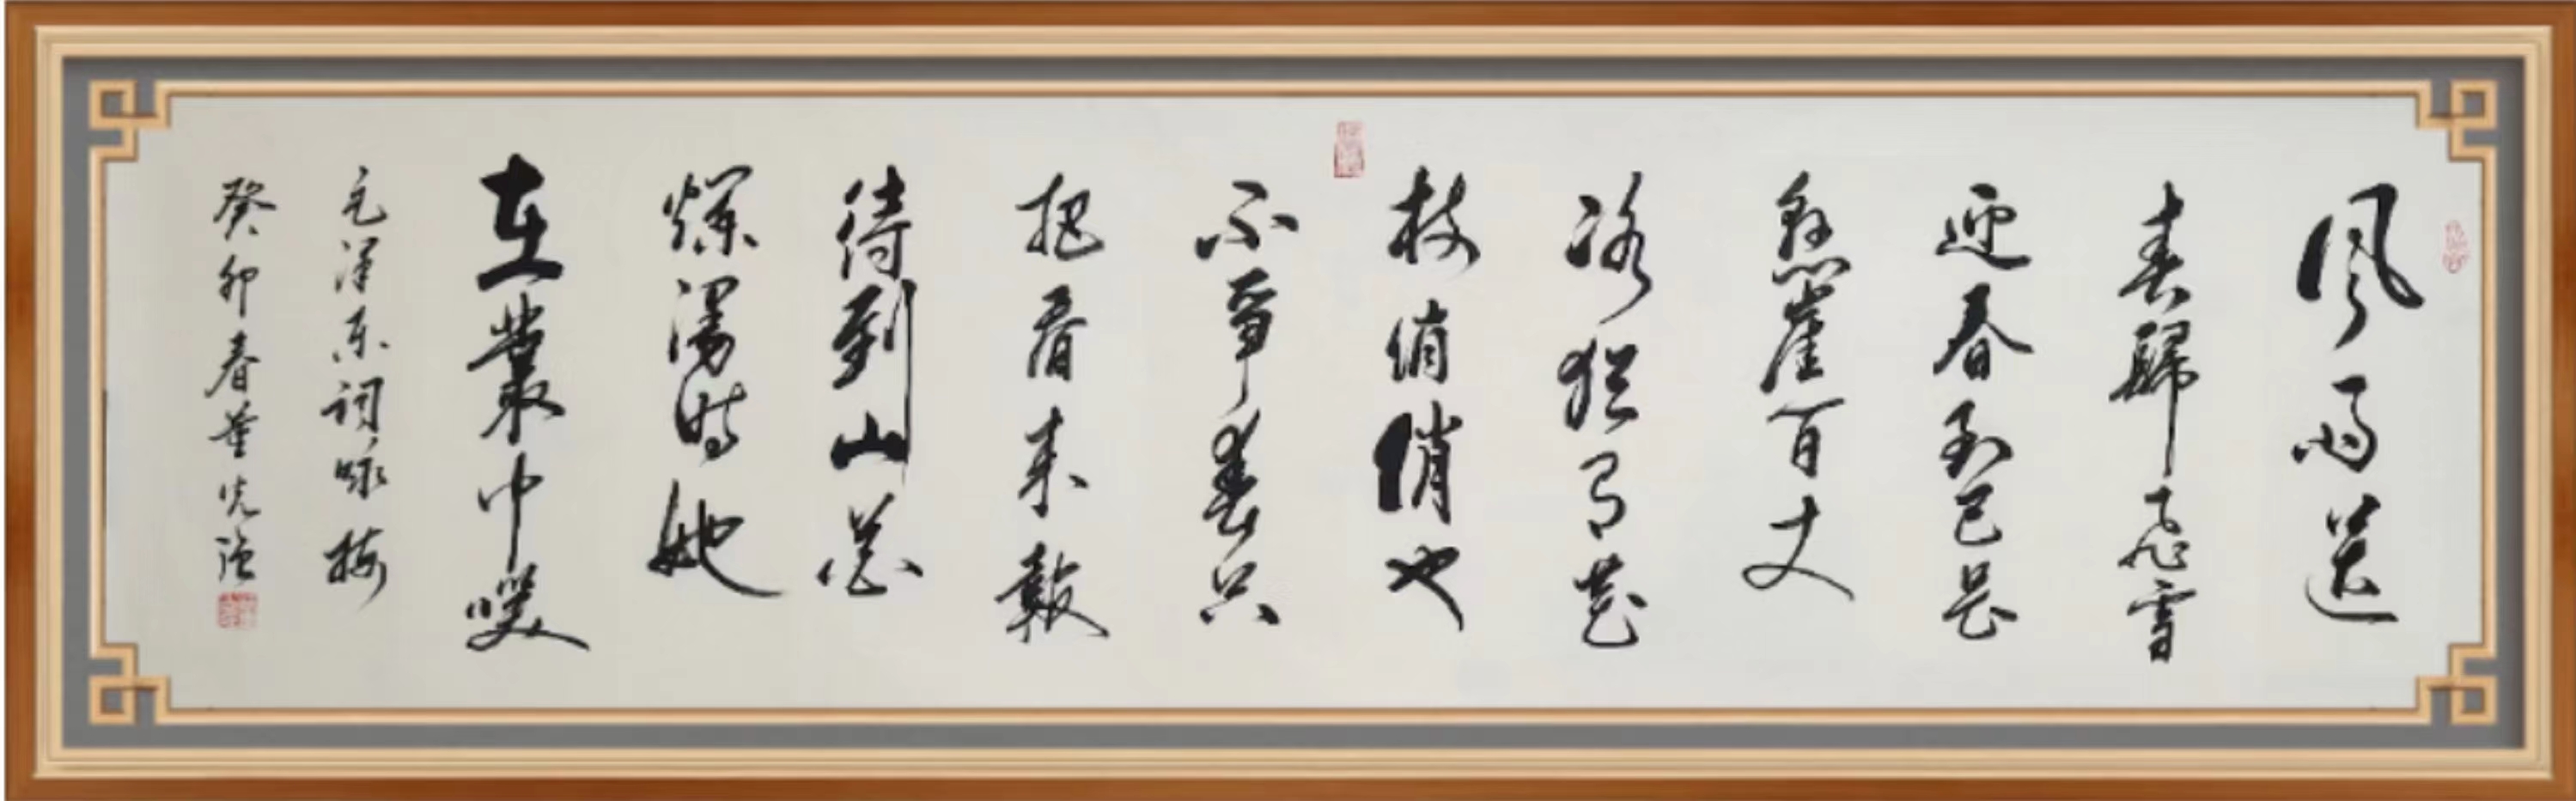 風雨送
春歸飛雪
迎春到已是
懸崖百丈
冰猶有花
枝俏俏也
不爭春只
把春來報
待到山花
爛漫時她
在叢中咲
毛澤东詞咏梅
癸卯春董光强